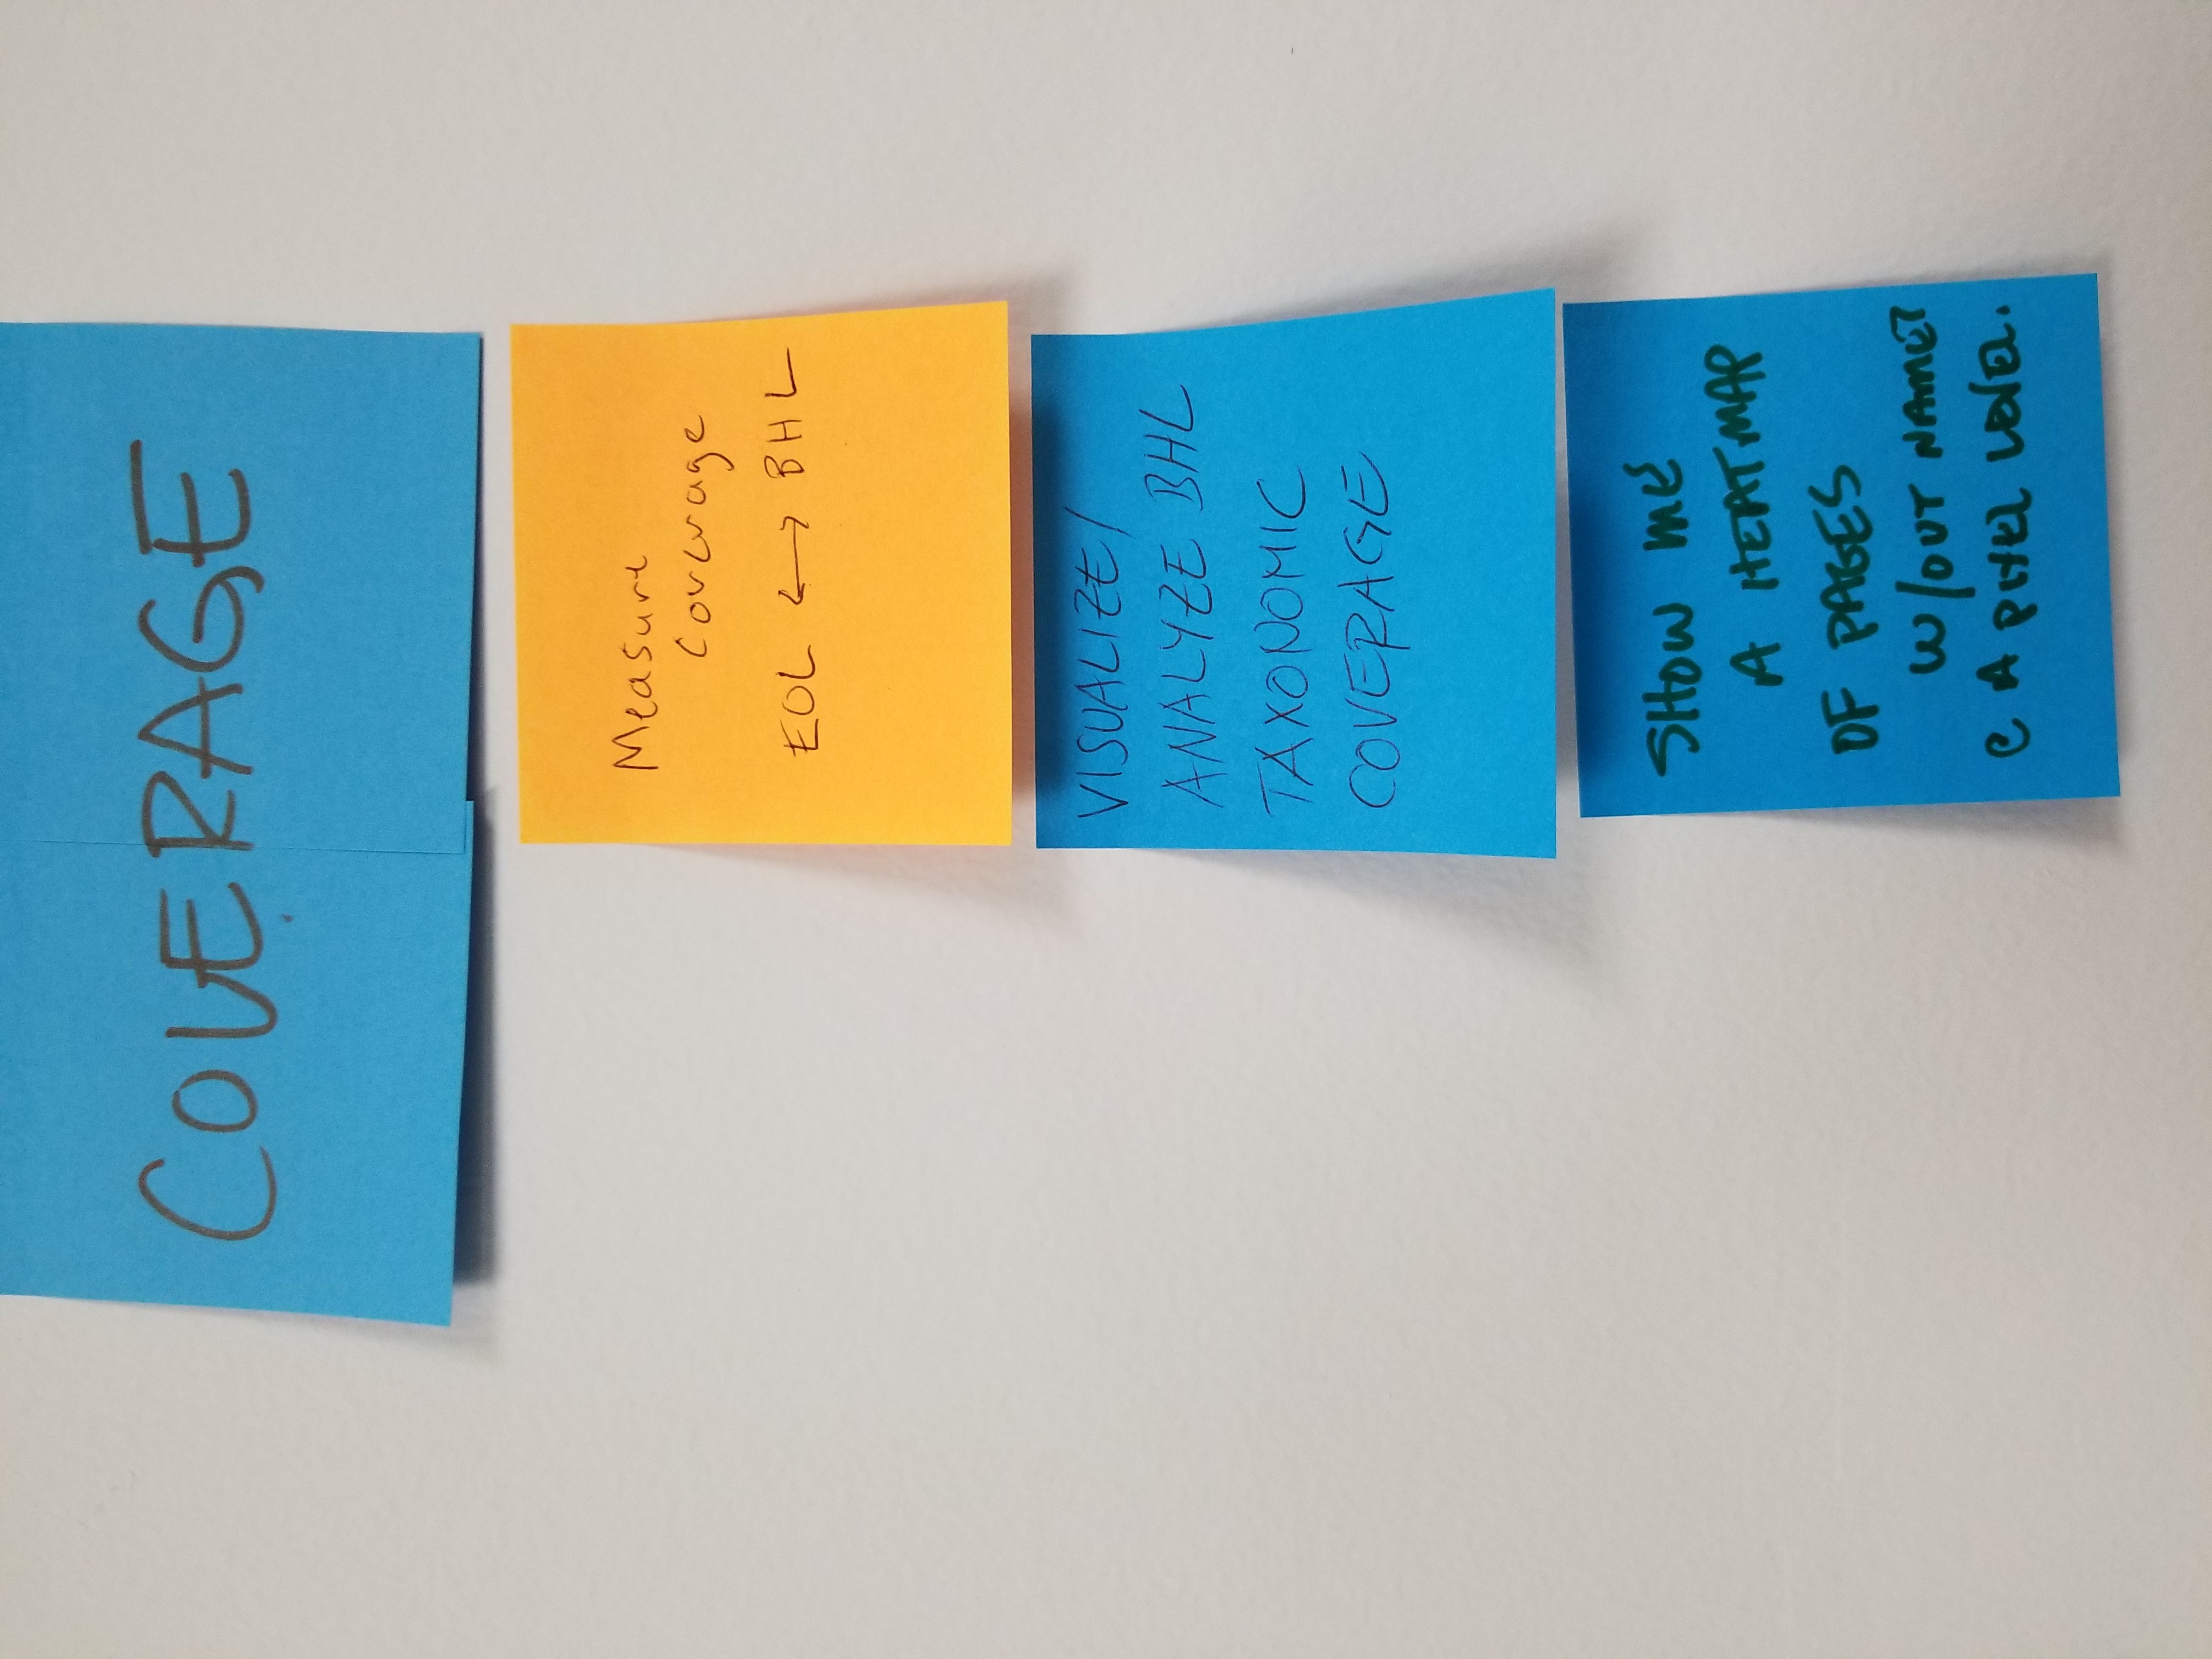 COVERAGE
Measure
Coverage
EOL ↔ BHL
VISUALIZE/
ANALYZE BHL
TAXONOMIC
COVERAGE
SHOW ME
A HEATMAP
OF PAGES
W/OUT NAMES
@ A PIXEL LEVEL.